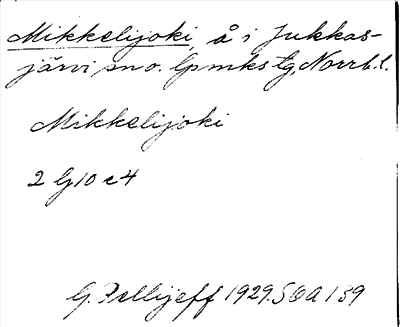 Mikkelijoki, å i Jukkas-
järvi sn o. lpmks tg, Norrb. l.
Mikkelijoki
2 lj 10 c4
G. Pellijeff 1929. SOA 139